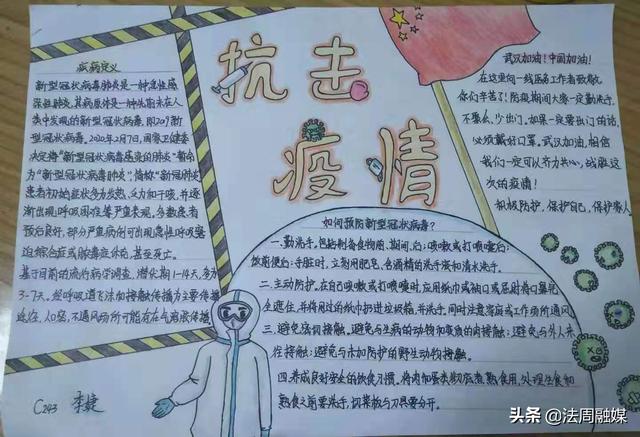 抗击
疫情
疾病定义
新型冠状病毒肺炎是一种急性感
染性肺炎,其病原体是一种先前未在人
类中发现的新型冠状病毒,即2019新
型冠状病毒。2020年2月7日,国家卫健委
决定将"新型冠状病毒感染的肺炎"暂命
为"新型冠状病毒肺炎",简称"新冠肺炎
患者初始症状多为发热、乏力和干咳,并逐
渐出现呼吸困难等严重表现。多数患者
预后良好,部分严重病例可出现急性呼吸窘
迫综合症或脓毒症休克,甚至死亡。
基于目前的流行病学调查,潜伏期1-14天,多为
3-7天。经呼吸道飞沫和接触传播为主要传播
途径,人口密、不通风场所可能存在气溶胶传播
武汉加油!中国加油!
在这里向一线医务工作者致敬,
你们辛苦了!防疫期间大家一定勤洗手,
不聚会,少出门。如果一定要出门的话,
必须戴好口罩。武汉加油,相信
我们一定可以齐力共心,战胜这
次的疫情!
积极防护,保护自己,保护家人
如何预防新型冠状病毒?
一.勤洗手。包括制备食物前、期间、后;咳嗽或打喷嚏后;
饮前便后;手脏时,立刻用肥皂、含酒精的洗手液和清水洗手。
二.主动防护。在自己咳嗽或打喷嚏时,应用纸巾或袖口或屈肘将口鼻完
全遮住,并将用过的纸巾扔进垃圾箱,并洗手。同时注意家庭或工作场所通风
三.避免密切接触。避免与生病的动物和变质的肉接触;避免与外人来
往接触;避免与未加防护的野生动物接触。
四.养成良好安全的饮食习惯。将肉和蛋类彻底煮熟食用,处理生食和
熟食之间要洗手,切菜板与刀具要分开。
C243 李婕
头条 @法周融媒